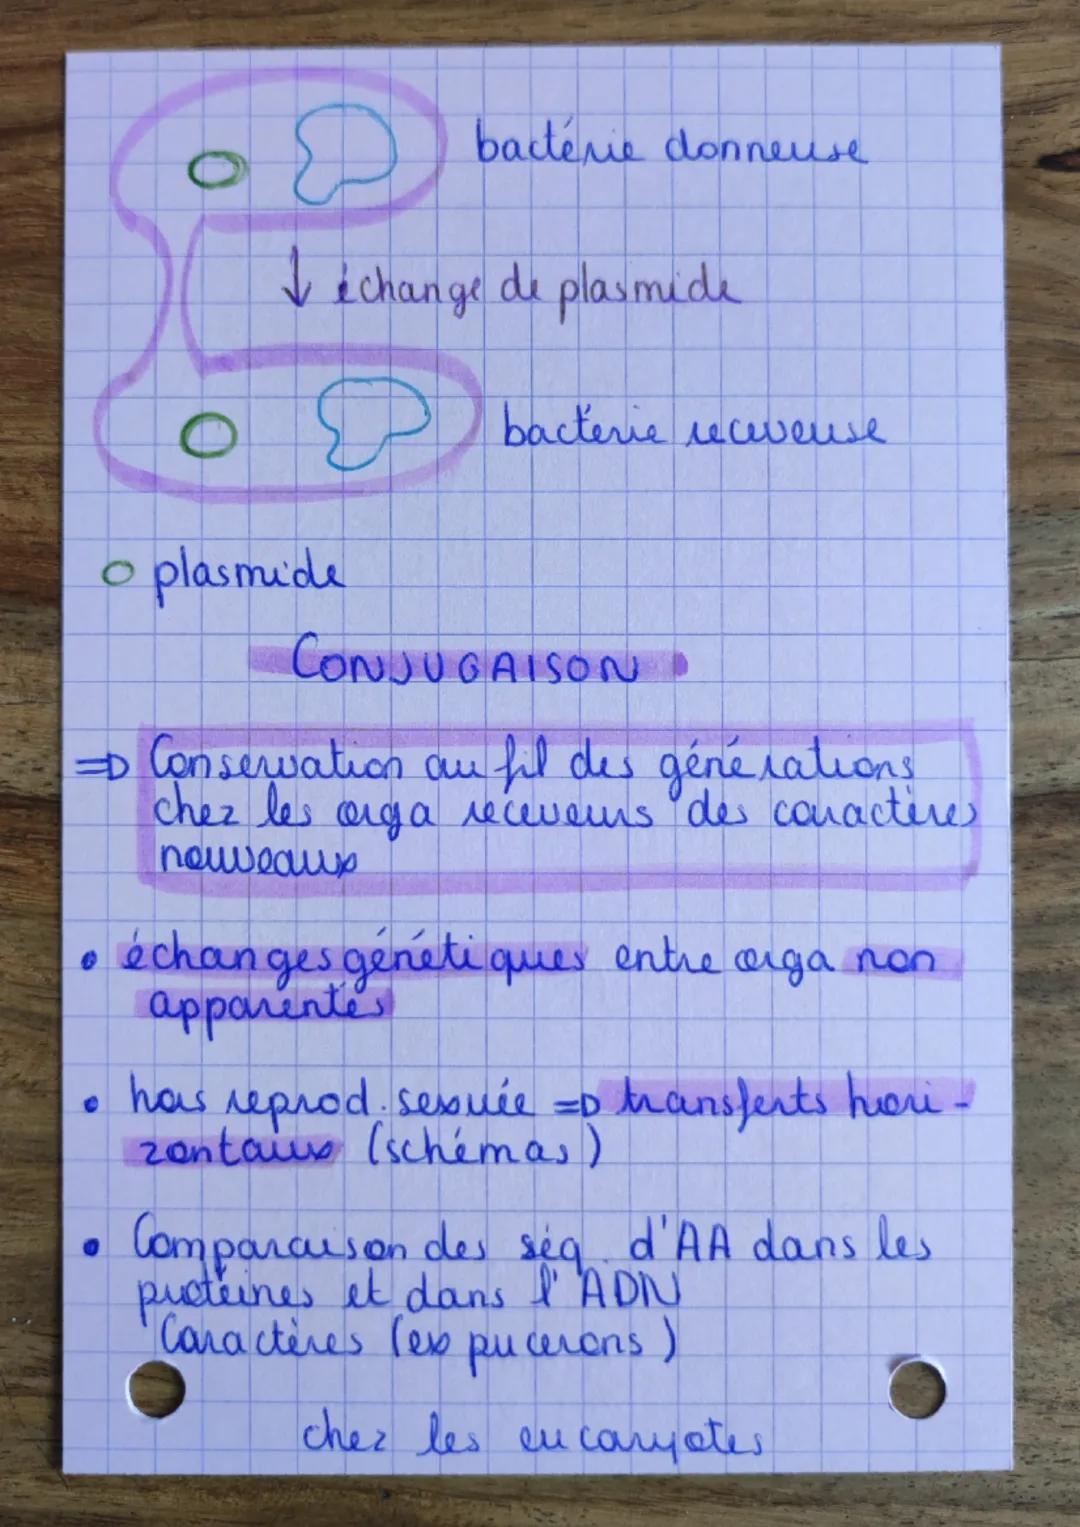 bactérie donneuse
↓ échange de plasmide
bactérie receveuse
plasmide
CONJUGAISON
=> Conservation au fil des générations
chez les orga receveurs des caractères
nouveaux
• échanges génétiques entre orga non
apparentés
• hors reprod. sexuée => transferts hori-
zontaux (schémas)
• Comparaison des séq. d'AA dans les
protéines et dans l'ADN
Caractères (ex pucerons)
chez les eucaryotes